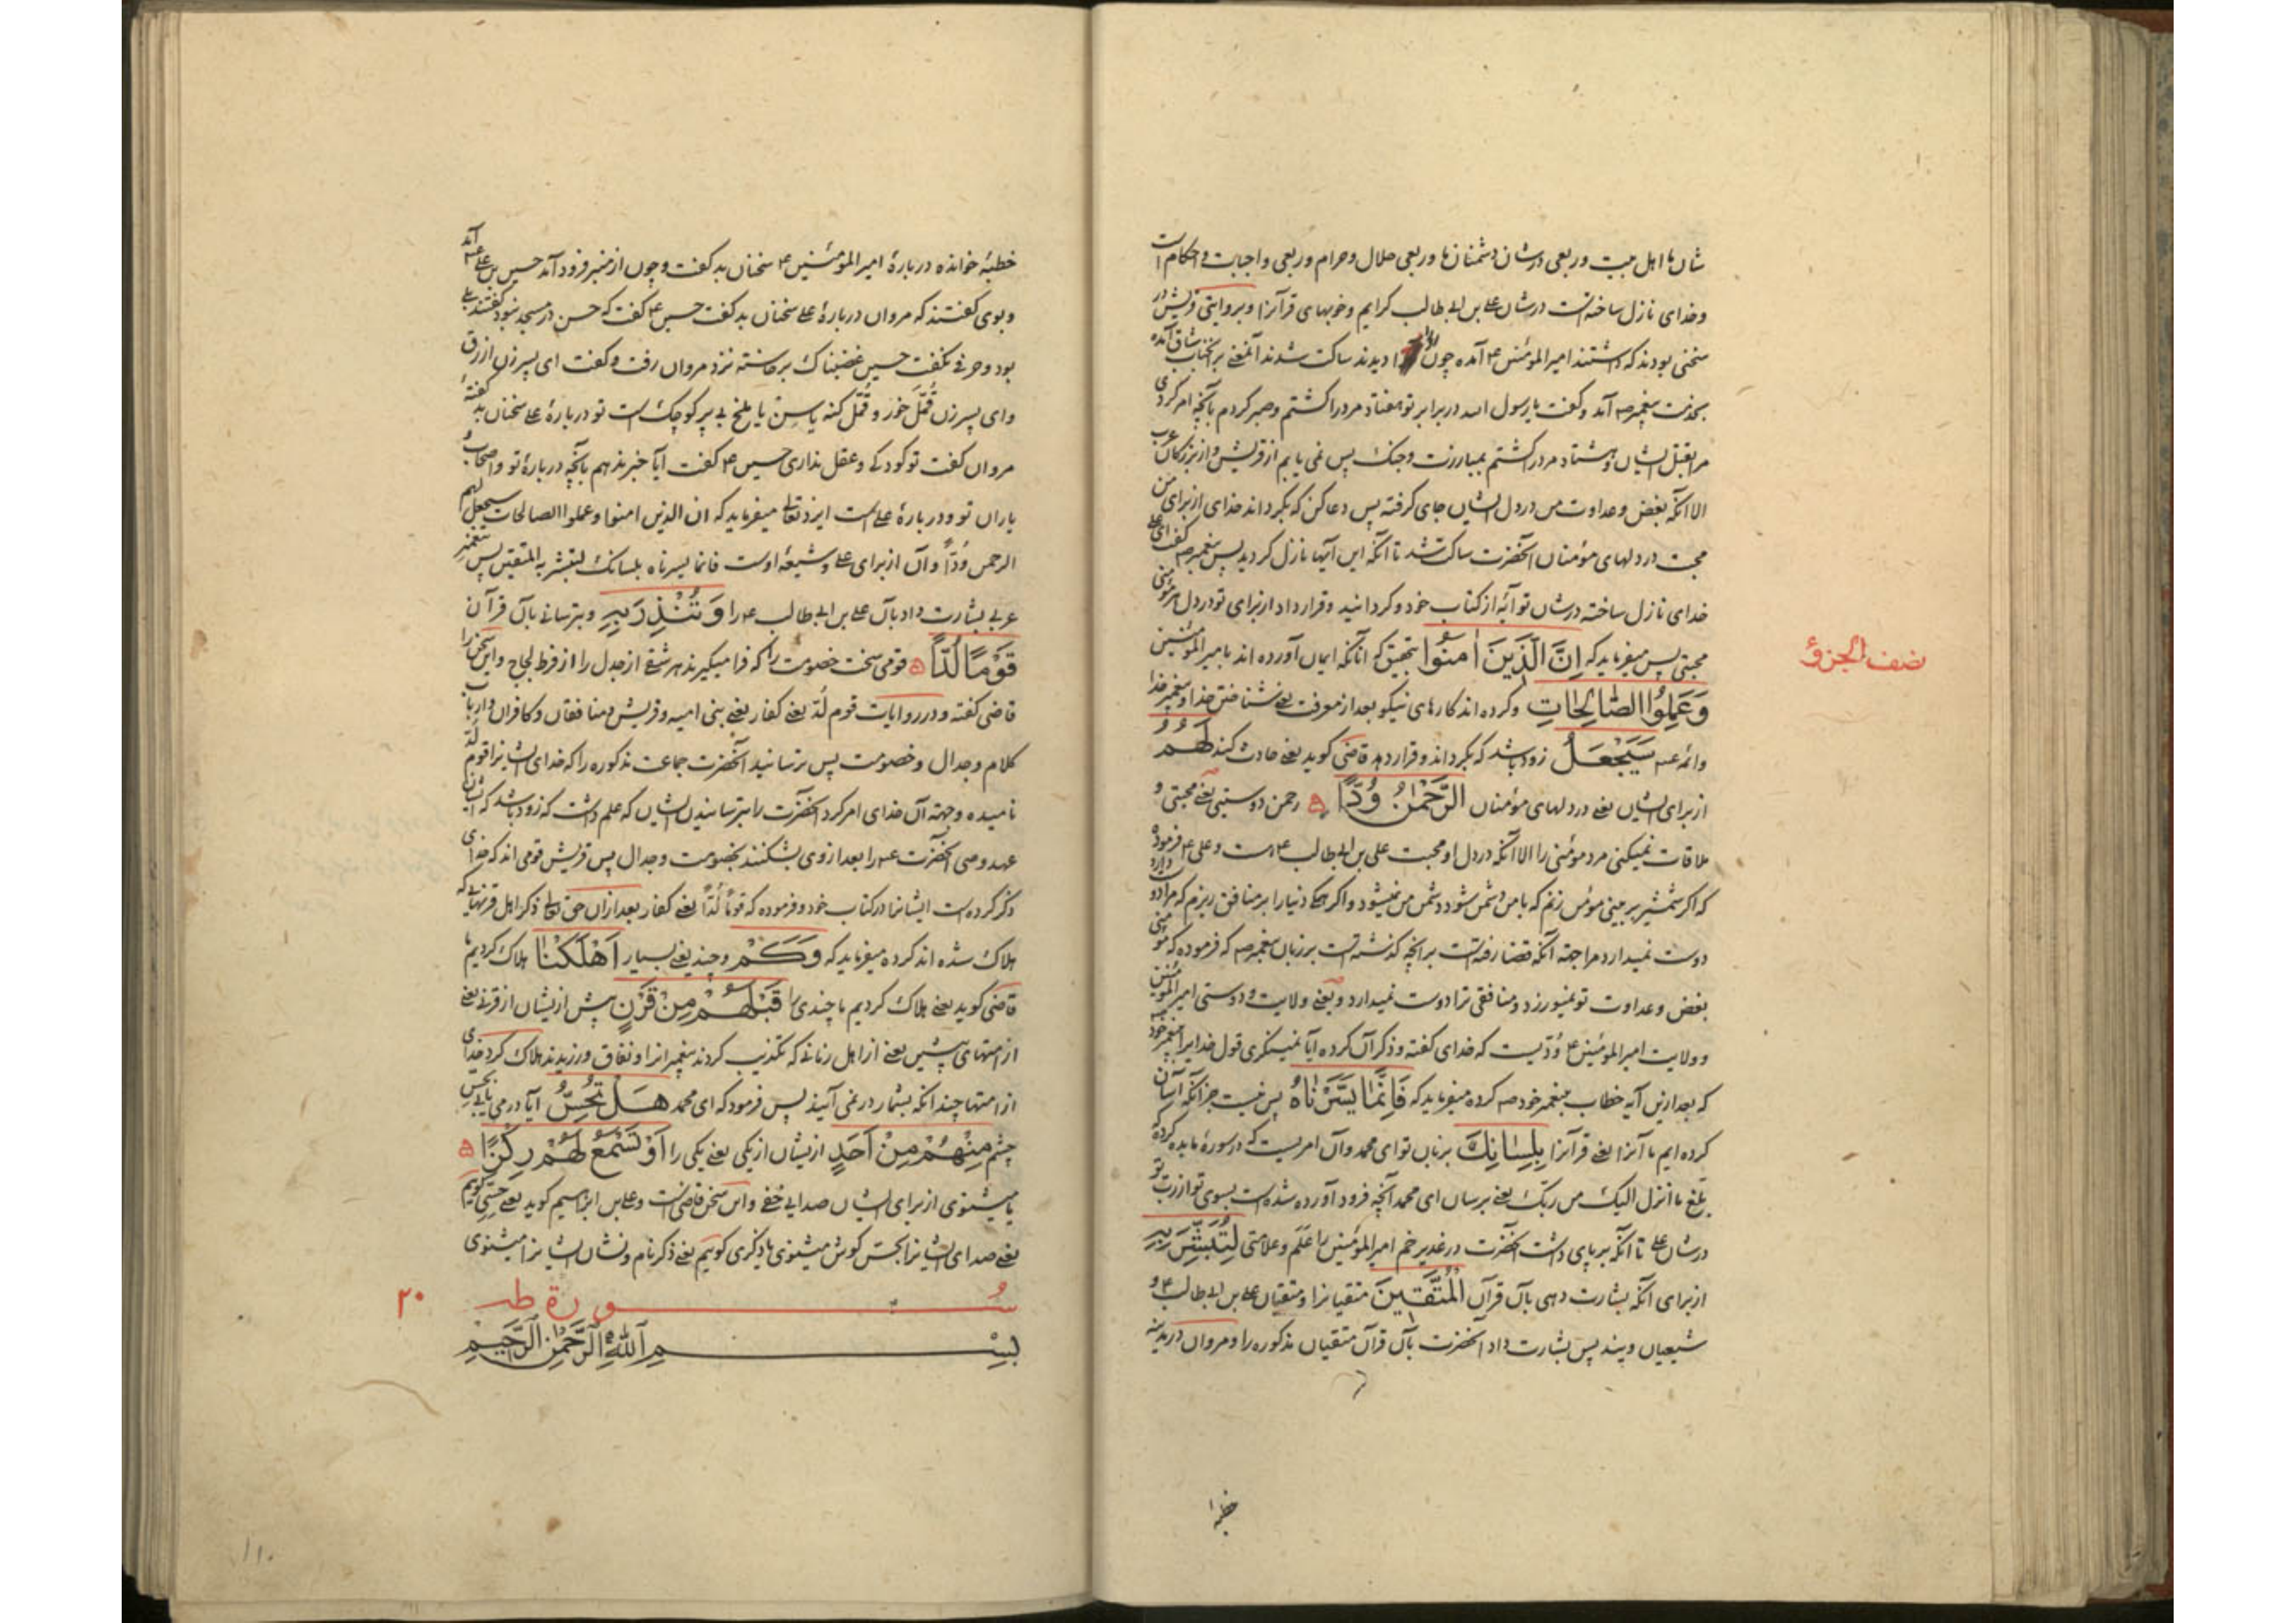 شان ما اهل بیت و ربعی در شان دشمنان ما و ربعی حلال و حرام و ربعی واجبات و احکام است
و خدای نازل ساخته است در شان علی بن ابی طالب کرایم و خوبیهای قرآنرا و بروایتی قریش در
سخنی بودند که داشتند امیر المؤمنین ع آمده چون او را دیدند ساکت شدند آنمعنی بر آنجناب شاق آمده
بخدمت پیغمبر ص آمد و گفت یا رسول الله در برابر تو هفتاد مرد را کشتم و صبر کردم بآنچه امر کردی
مرا بقتل ایشان و هشتاد مرد را کشتم بمبارزت و جنک پس نمی یابم از قریش و از بزرکان عرب
الا آنکه بغض و عداوت من در دل ایشان جای کرفته پس دعا کن که بکرداند خدای از برای من
محبت در دلهای مؤمنان آنحضرت ساکت شد تا آنکه این آیها نازل کردید پس پیغمبر ص گفت ای علی
خدای نازل ساخته در شان تو آیه از کتاب خود و کردانید و قرار داد از برای تو در دل هر مؤمنی
محبتی پس میفرماید که اِنَّ الَّذینَ اٰمَنُوا بتحقیق که آنانکه ایمان آورده اند بامیر المؤمنین
وَعَمِلُوا الصّٰالِحٰاتِ و کرده اند کارهای نیکو بعد از معرفت یعنی شناختن خدا و پیغمبر خدا
و ائمه ع سَیَجْعَلُ زود باشد که بکرداند و قرار دهد قاضی کوید یعنی حادث کند لَهُمُ
از برای ایشان یعنی در دلهای مؤمنان الرَّحْمٰنُ وُدًّا رحمن دوستیی یعنی محبتی و
ملاقات نمیکنی مرد مؤمنی را الا آنکه در دل او محبت علی بن ابی طالب ع است و علی ع فرموده
که اگر شمشیر بر بینی مؤمن زنم که با من دشمن شود دشمن من نمیشود و اکر همکی دنیا را بر منافق ریزم که مرا دوست دارد
دوست نمیدارد مرا جهة آنکه قضا رفته است بر آنچه کذشته است بر زبان پیغمبر ص که فرموده که مؤمنی
بغض و عداوت تو نمیورزد و منافقی ترا دوست نمیدارد و یعنی ولایت و دوستی امیر المؤمنین
و ولایت امیر المؤمنین ع وُدّیست که خدای گفته و ذکر آن کرده آیا نمینکری قول خدایرا پیغمبر خود
که بعد ازین آیه خطاب پیغمبر خود ص کرده میفرماید که فَاِنَّمٰا یَسَّرْنٰاهُ پس نیست جز آنکه آسان
کرده ایم ما آنرا یعنی قرآنرا بِلِسٰانِكَ بزبان تو ای محمد و آن امریست که در سورهٔ مایده کرده
بلّغ ما انزل الیک من ربّک یعنی برسان ای محمد آنچه فرود آورده شده است بسوی تو از ربّ تو
در شان علی تا آنکه برپای داشت آنحضرت در غدیر خم امیر المؤمنین را عَلَم و علامتی لِتُبَشِّرَ بِهِ
از برای آنکه بشارت دهی بآن قرآن الْمُتَّقینَ متقیانرا و متقیان علی بن ابی طالب ع و
شیعیان ویند پس بشارت داد آنحضرت بآن قرآن متقیان مذکوره را و مروان در مدینه
نصف الجزؤ
خطبهٔ
خطبهٔ خوانده در بارهٔ امیر المؤمنین ع سخنان بد کفت و چون از منبر فرود آمد حسین بن علی ع آمد
و بوی کفتند که مروان در بارهٔ علی سخنان بد کفت حسین ع کفت که حسن در مسجد نبود کفتند بلی
بود و حرفی نکفت حسین غضبناک برخاسته نزد مروان رفت و کفت ای پسر زن ازرق
و ای پسر زن قُمَّل خور و قُمَّل کنه یا سِن یا ملخ بی پر کوچک است تو در بارهٔ علی سخنان بد کفتهٔ
مروان کفت تو کودکی و عقل نداری حسین ع کفت آیا خبر ندهم بآنچه در بارهٔ تو و اصحاب
یاران تو و در بارهٔ علی است ایزد تعالی میفرماید که ان الذین امنوا و عملوا الصالحات سیجعل لهم
الرحمن وُدّاً و آن از برای علی و شیعهٔ اوست فانما یسرناه بلسانک لتبشر به المتقین پس پیغمبر
عربی بشارت داد بآن علی بن ابی طالب ع را وَتُنْذِرَ بِهِ و بترسانی بآن قرآن
قَوْمًا لُدّاً قومی سخت خصومت را که فرا میکیرند هر شقی از جدل را از فرط لجاج و این سخن را
قاضی کفته و در روایات قوم لُدّ یعنی کفار یعنی بنی امیه و قریش و منافقان و کافران و ارباب
کلام و جدال و خصومت پس ترسانید آنحضرت جماعت مذکوره را که خدای ایشانرا قوم لُدّ
نامیده و جهة آن خدای امر کرد آنحضرت را بترسانیدن ایشان که علم داشت که زود باشد که ایشان
عهد وصی آنحضرت ع را بعد از وی بشکنند بخصومت و جدال پس قریش قومی اند که خدای
ذکر کرده است ایشانرا در کتاب خود و فرموده که قوماً لُدّاً یعنی کفار بعد ازان حق تعالی ذکر اهل قرنهایی که
هلاک شده اند کرده میفرماید که وَکَمْ و چند یعنی بسیار اَهْلَکْنٰا هلاک کردیم ما
قاضی کوید یعنی هلاک کردیم ما چندی را قَبْلَهُمْ مِنْ قَرْنٍ پیش ازیشان از قرنی یعنی
از امتهای پیشین یعنی از اهل زمانی که تکذیب کردند پیغمبرانرا و نفاق ورزیدند هلاک کرد خدای
از امتها چند آنکه بشمار در نمی آیند پس فرمود که ای محمد هَلْ تُحِسُّ آیا در می یابی بحسّ
چشم مِنْهُمْ مِنْ اَحَدٍ ازیشان از یکی یعنی یکی را اَوْ تَسْمَعُ لَهُمْ رِکْزًا
یا میشنوی از برای ایشان صدایی خفی و این سخن قاضی است و علی بن ابراهیم کوید یعنی حسّی کوییم
یعنی صدای ایشانرا بحسّ کوش میشنوی یا ذکری کوییم یعنی ذکر نام و نشان ایشانرا میشنوی
سُورة طه ٢٠
بِسْمِ اللّٰهِ الرَّحْمٰنِ الرَّحیمِ
١١٠